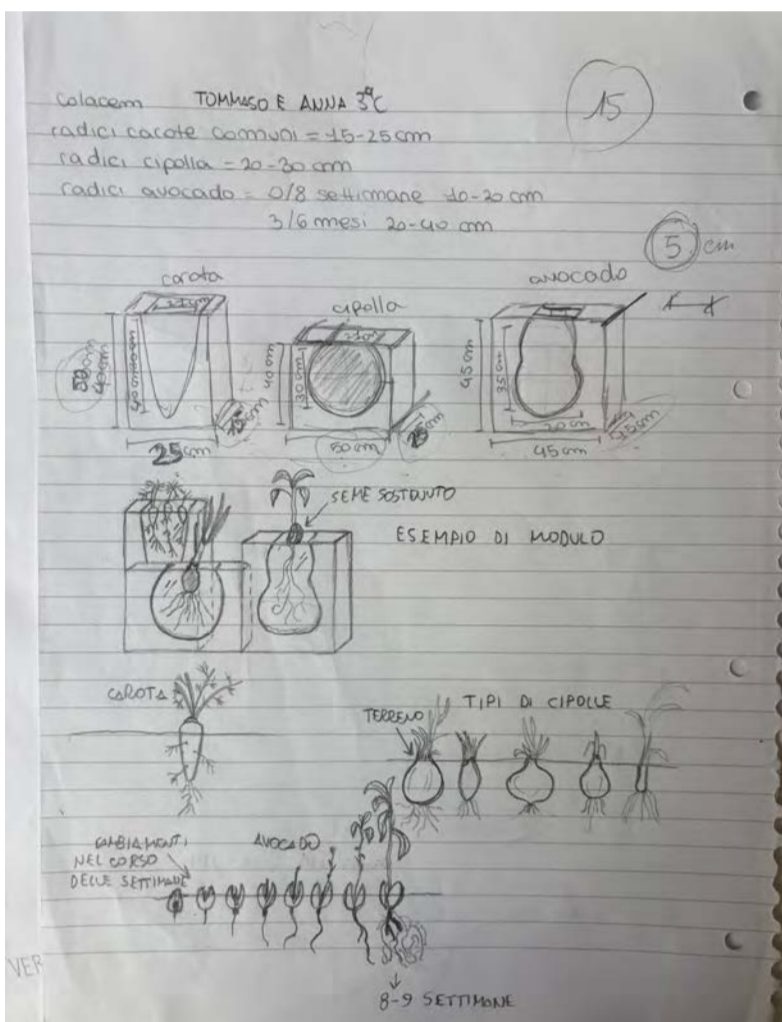 Colacem TOMMASO E ANNA 3ªC
15
radici carote comuni = 15-25 cm
radici cipolla = 20-30 cm
radici avocado = 0/8 settimane 10-20 cm
3/6 mesi 20-40 cm
5 cm
carota
cipolla
avocado
40 cm
30 cm
45 cm
35 cm
20 cm
15 cm
25 cm
50 cm
25 cm
45 cm
15 cm
SEME SOSTENUTO
ESEMPIO DI MODULO
CAROTA
TIPI DI CIPOLLE
TERRENO
CAMBIAMENTI
NEL CORSO
DELLE SETTIMANE
AVOCADO
VER
8-9 SETTIMANE